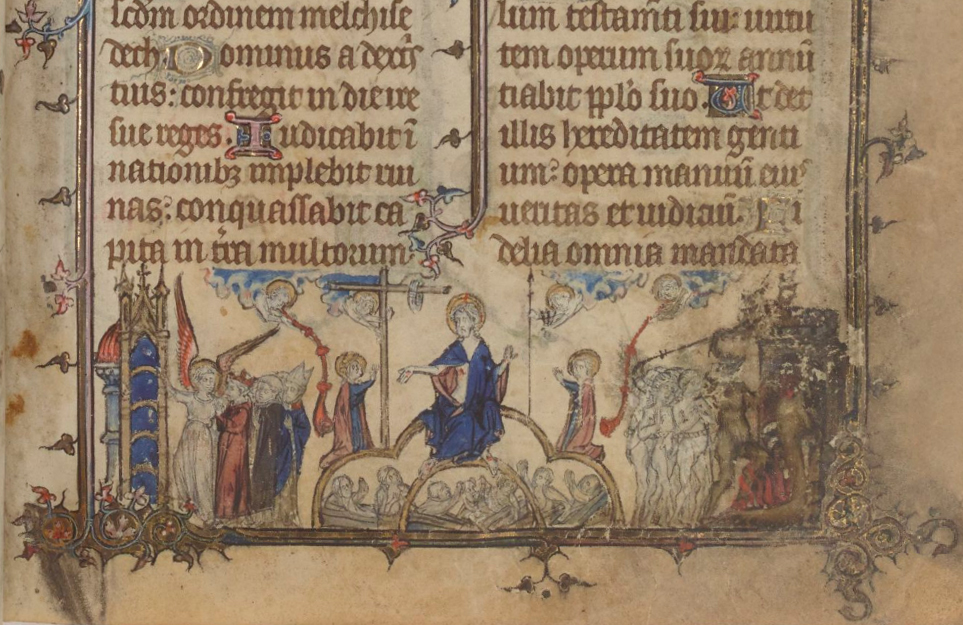 scd̄m ordinem melchise
dech Dominus a dext̄s
tius: confregit in die ire
sue reges Iudicabit ī
nationibȝ implebit rui
nas: conquassabit ca
pita in t̄ra multorum
lum testam̄ti sui: uirtu
tem operum suoꝝ annū
tiabit pp̄lo suo. Ut det
illis hereditatem genti
um: opera manuū eiꝰ
ueritas et iudiciū. Fi
delia omnia mandata